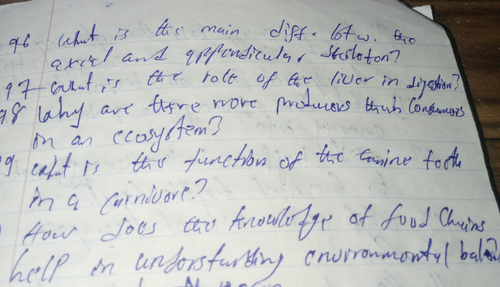 96 what is the main diff. btw. the
axial and appendicular skeleton?
97 what is the role of the liver in digestion?
98 Why are there more producers than Consumers
in an ecosystem?
9 what is the function of the canine tooth
in a carnivore?
How does the knowledge of food Chains
help in understanding environmental